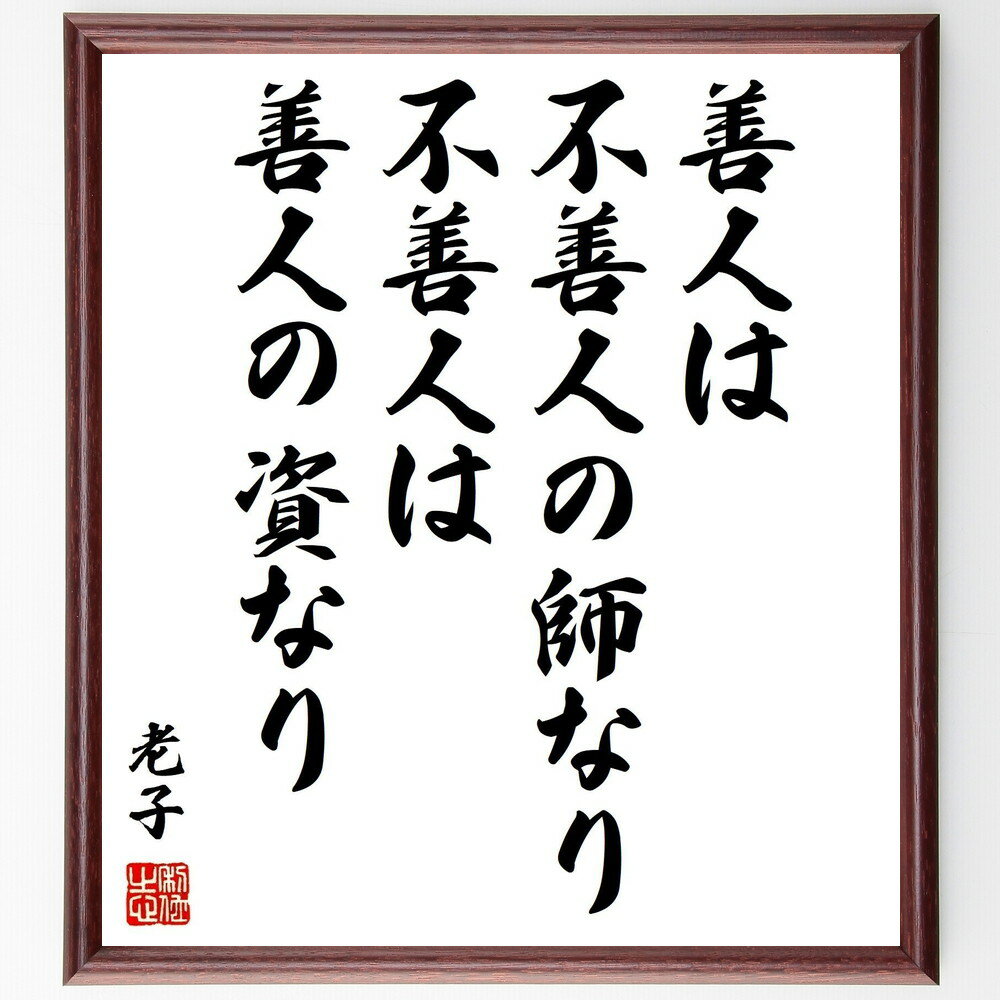 善人は
不善人の師なり
不善人は
善人の資なり
老子